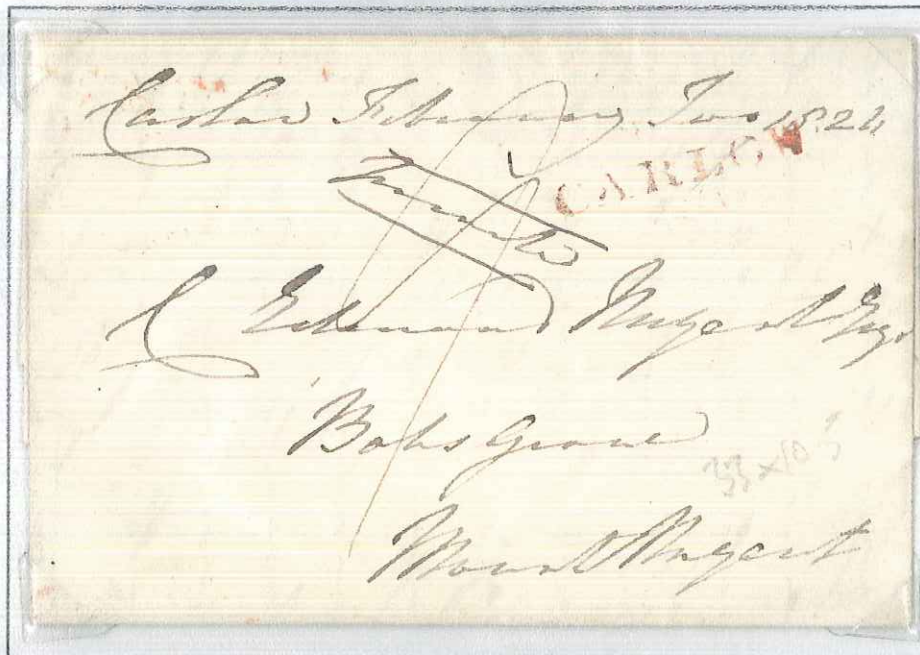 Carlow February Two 1824
CARLOW
C Edmund Nugent Esqr
Bobs Grove
Mount Nugent
33 x 10